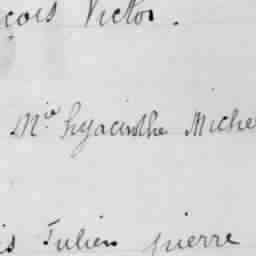 çois Victor.
Mie hyacinthe Miche
is Julien pierre